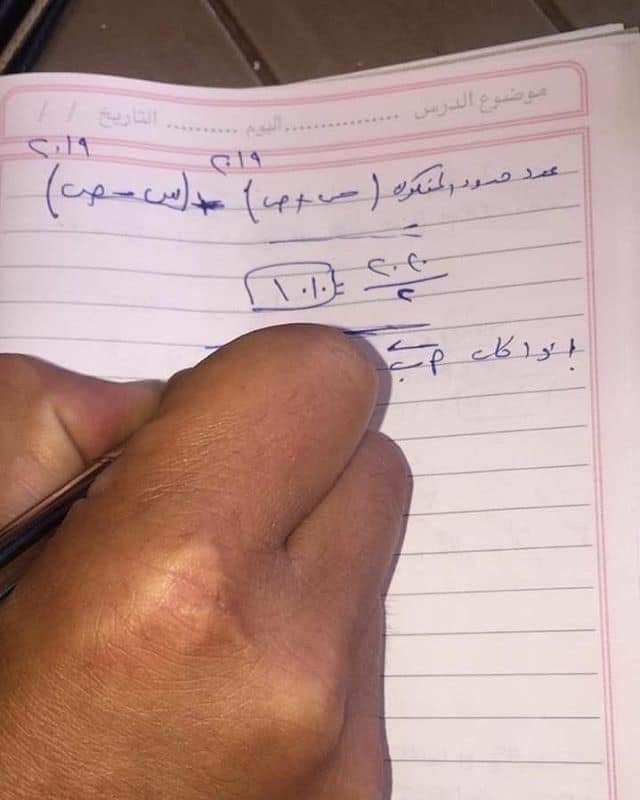 موضوع الدرس ................ اليوم .......... التاريخ / /
عدد حدود المفكوك (س + ص)^٢٠١٩ + (س - ص)^٢٠١٩
٢٠٢٠ / ٢ = ١٠١٠
اذا كان